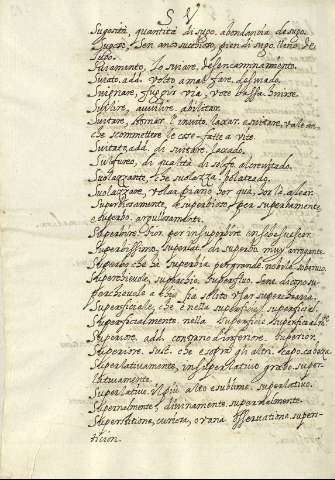 S V
Sugosità, quantità di sugo. abondancia de sugo.
Sugoso, Sen ancosuccioso, pien di sugo. lleno de
sugo.
Sviamento, Lo sviare. desencaminamento.
Sviato, add. volto a mal fare. desviado.
Svignare, fuggir via, voce bassa. huirse.
Svilire, avvilire. abiltar.
Svitare, stornar l'invito, lasciar. e svitare, vale an-
che scommettere le cose fatte a vite.
Svitato, add. di svitare.
Sulfureo, di qualità di solfo. alcreuitado.
Svolazzante, che svolazza.
Svolazzare, volar piano hor quà, hor là. alear.
Superbamente, superbioso, per superbamente
e superbo. orgullosamente.
Superbire, divenir superbo. ensobervescer.
Superbissimo, superlat. di superbo. muy arrogante.
Superbo, che hà superbia per grande, nobile. sobervio.
Superchievole, superchio, superfluo.
parchievole a chi ha solito usar superchiaria.
Superficiale, che è nella superficie. superficial.
Superficialmente, nella superficie.
Superiore, add. contrario d'inferiore. superior.
Superiore, sust. che è sopra gli altri. capo. cabeza.
Superlativamente, in superlativo grado. super-
lativamente.
Superlativo, il più alto e sublime. superlativo.
Supernalmente, divinamente. supernalmente.
Superstitione, curiosa, o vana osservatione. super-
sticion.